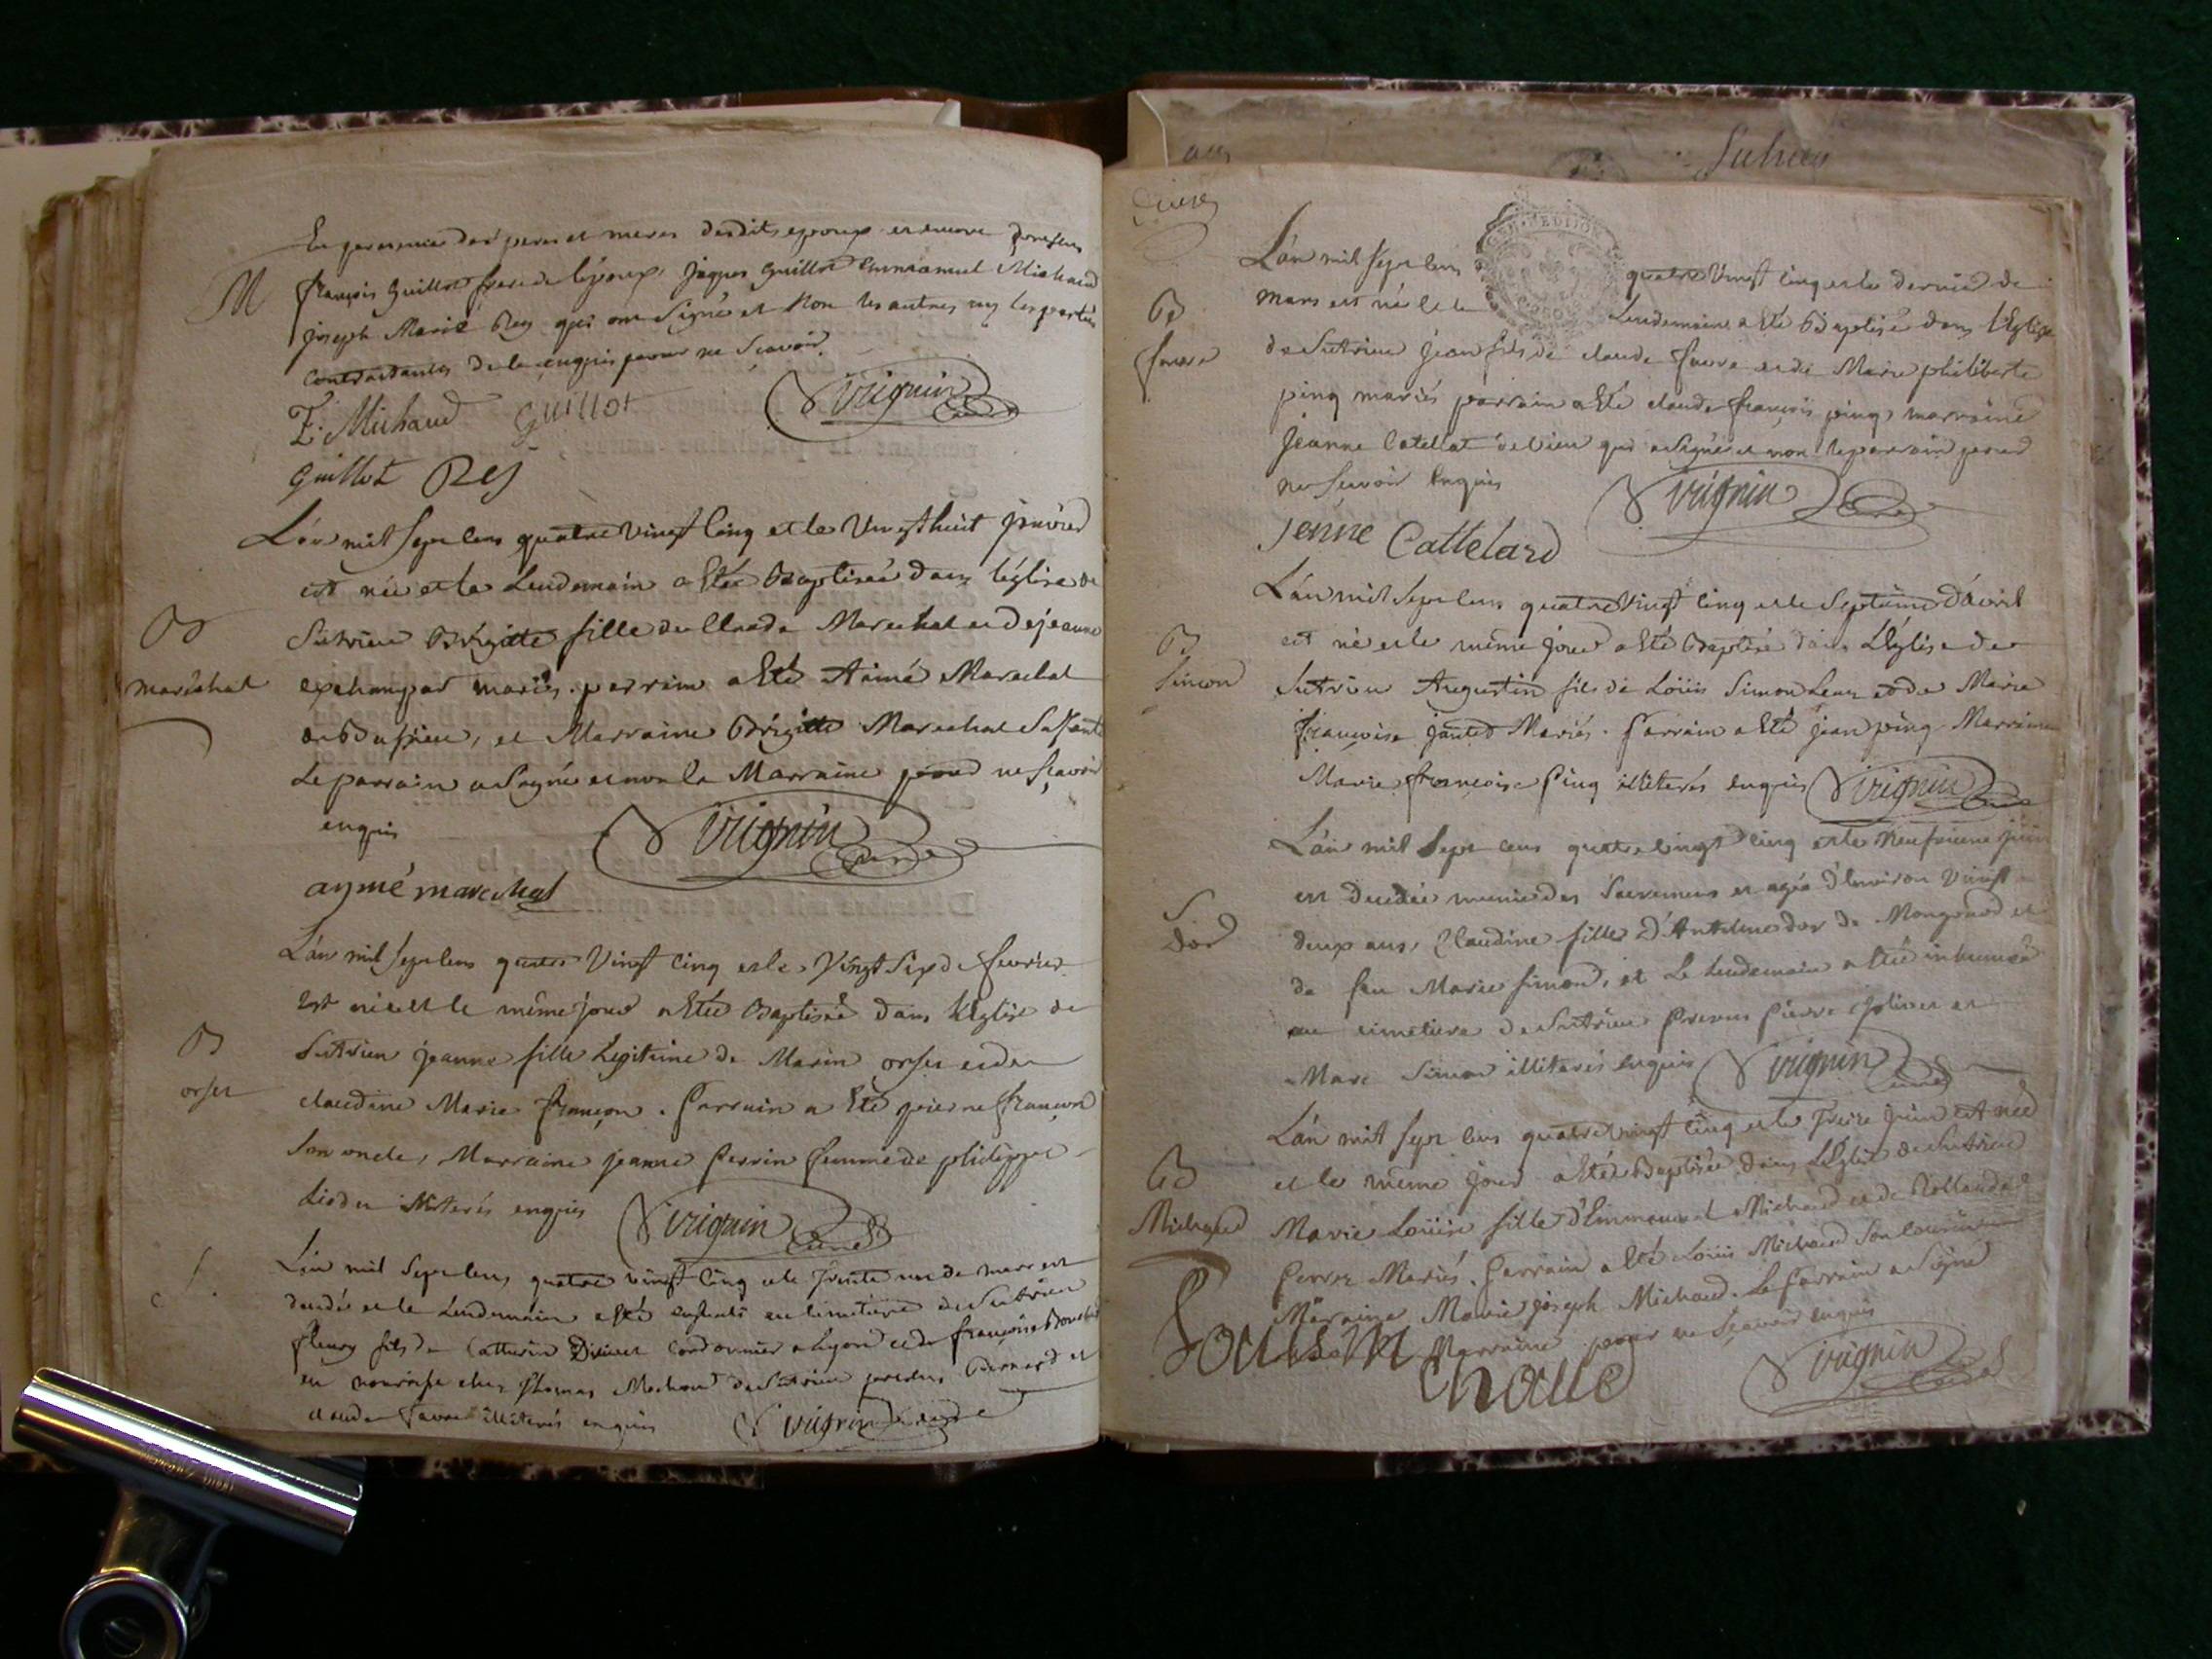 En presence des peres et meres desdits epoux et encore presens
M
françois Guillot frere de l'époux, jaques Guillot Emmanuel Michaud
joseph Marie Rey qui ont signé et non les autres ny les parties
contractantes de ce enquis pour ne sçavoir
E. Michaud Guillot Vrignin curé
Guillot Rey
L'an mil sept cens quatre vingt cinq et le vingt huit janvier
est née et le lendemain a Eté Baptisée dans l'église de
B
Sutrieu Brigitte fille de Claude Marechal et de jeanne
maréchal
mariés. parrain a Eté Aimé Marechal
et Marraine Brigitte Marechal sa tante
Le parrain a signé et non la Marraine pour ne sçavoir
enquis Vrignin curé
aymé marechal
L'an mil sept cens quatre Vingt cinq et le Vingt Six de fevrier
est née et le même jour a Eté Baptisée dans l'Eglise de
B
Sutrieu jeanne fille Legitime de Marin orset et de
orset
claudine Marie françon. Parrain a Eté pierre françon
son oncle, Marraine jeanne Perrin femme de philippe
illiterés enquis Vrignin curé
L'an mil Sept cens quatre vingt cinq et le trente un de mars est
decédé et le lendemain a Eté enseveli au cimetiere de Sutrieu
fleury fils de cordonnier a Lyon et de françoise
en nourrisse chez thomas Michaud de Sutrieu presens Bernard et
claude favre illiterés enquis Vrignin curé
GEN DE DIJON
L'an mil sept cens quatre vingt cinq et le dernier de
B
mars est né et le lendemain a Eté Baptisé dans l'Eglise
favre
de Sutrieu jean fils de claude favre et de Marie philiberte
pinq mariés parrain a Eté claude françois pinq, marraine
jeanne Catelat de vieu qui a signé et non le parrain pour
ne sçavoir Enquis Vrignin curé
jenne Cattelard
L'an mil sept cens quatre vingt cinq et le septieme d'avril
B
est né et le même jour a Eté Baptisé dans L'Eglise de
Simon
Sutrieu Augustin fils de Loüis Simon et de Marie
françoise Mariés. Parrain a Eté jean pinq Marraine
Marie françoise Pinq illiterés enquis Vrignin curé
L'an mil Sept cens quatre vingt cinq et le neufvieme juin
est decedée munie des Sacremens et agée d'Environ vingt
S
deux ans, Claudine fille d'Antelme dor de Mongonod et
dor
de feu Marie simon, et Le lendemain a Eté inhumée
au cimetiere de Sutrieu Presens Pierre joliver et
Marc Simon illiterés enquis Vrignin curé
L'an mil sept cens quatre vingt cinq et le treize juin est née
B
et le même jour a Eté Baptisée dans L'Eglise de Sutrieu
Michaud
Marie Loüise fille d'Emmanuel Michaud et de Rollande
Perret Mariés. Parrain a Eté Loüis Michaud son cousin
Maraine Marie joseph Michaud. Le Parrain a Signé
Marraine pour ne Sçavoir enquis
Vrignin curé